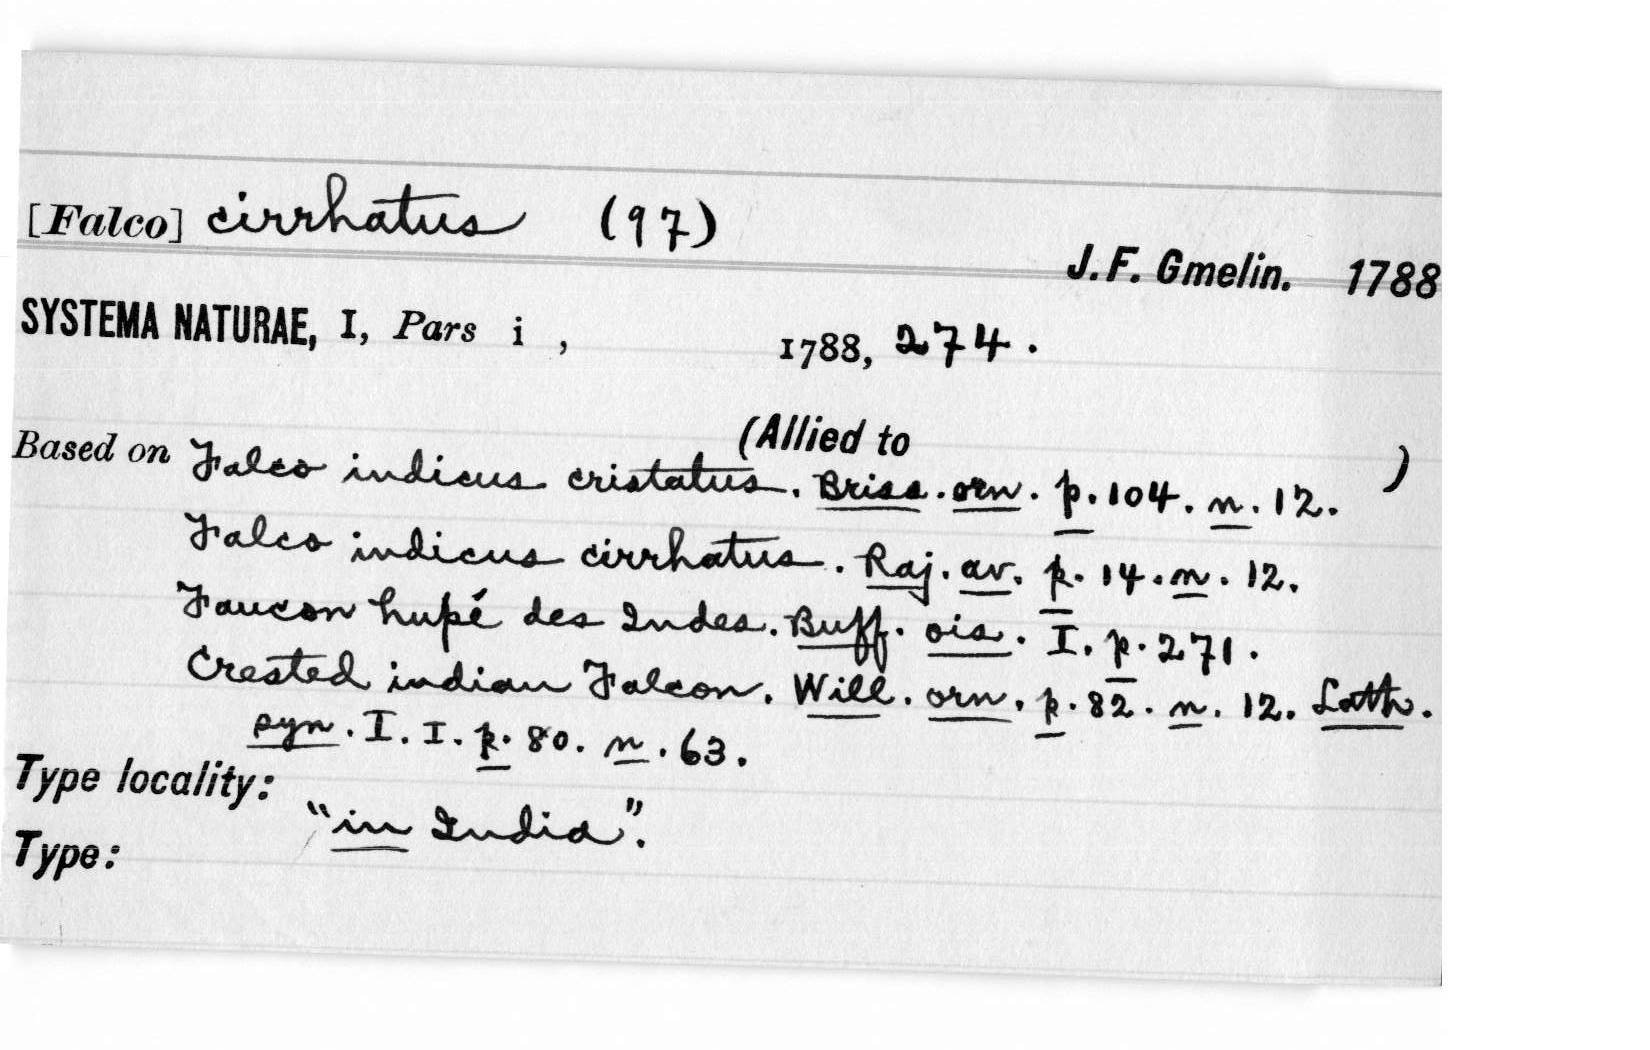 [Falco] cirrhatus (97)
J. F. Gmelin. 1788
SYSTEMA NATURAE, I, Pars i , 1788, 274.
(Allied to )
Based on Falco indicus cristatus. Briss. orn. p. 104. n. 12.
Falco indicus cirrhatus. Raj. av. p. 14. n. 12.
Faucon hupé des Indes. Buff. ois. I. p. 271.
Crested indian Falcon. Will. orn. p. 82. n. 12. Lath.
syn. I. I. p. 80. n. 63.
Type locality: "in India".
Type: